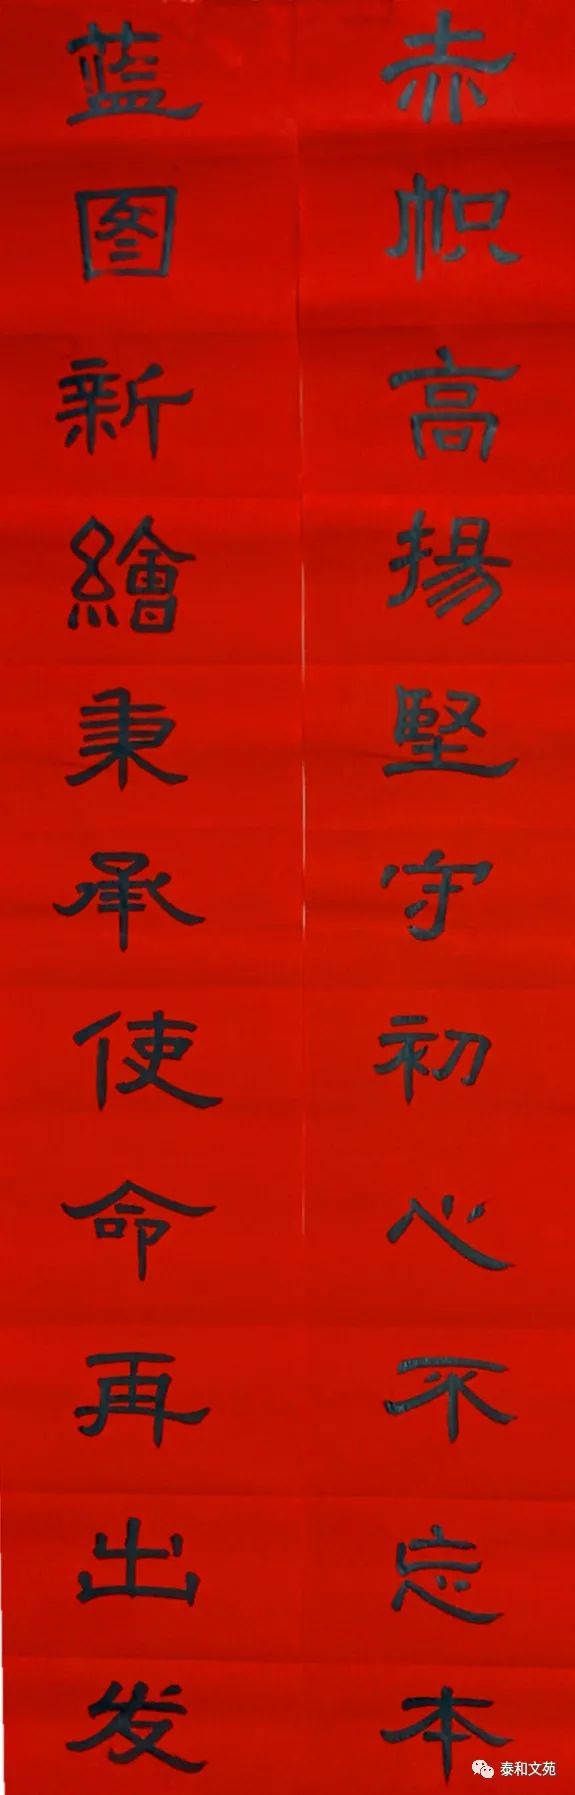 赤帜高揚堅守初心不忘本
蓝图新繪秉承使命再出发
泰和文苑